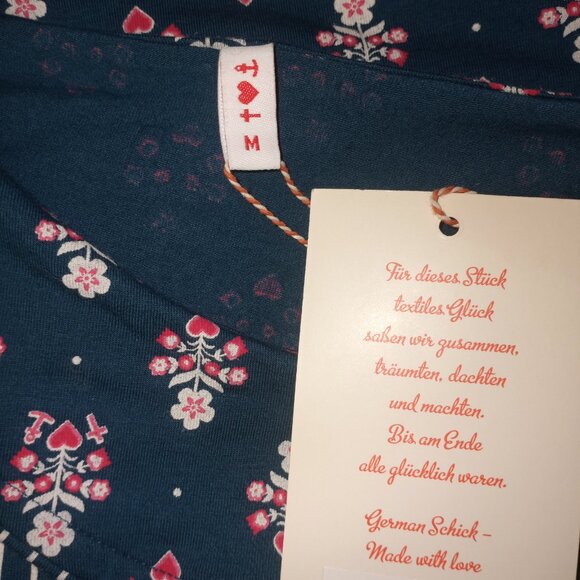 M
Für dieses Stück
textiles Glück
saßen wir zusammen,
träumten, dachten
und machten.
Bis am Ende
alle glücklich waren.
German Schick –
Made with love